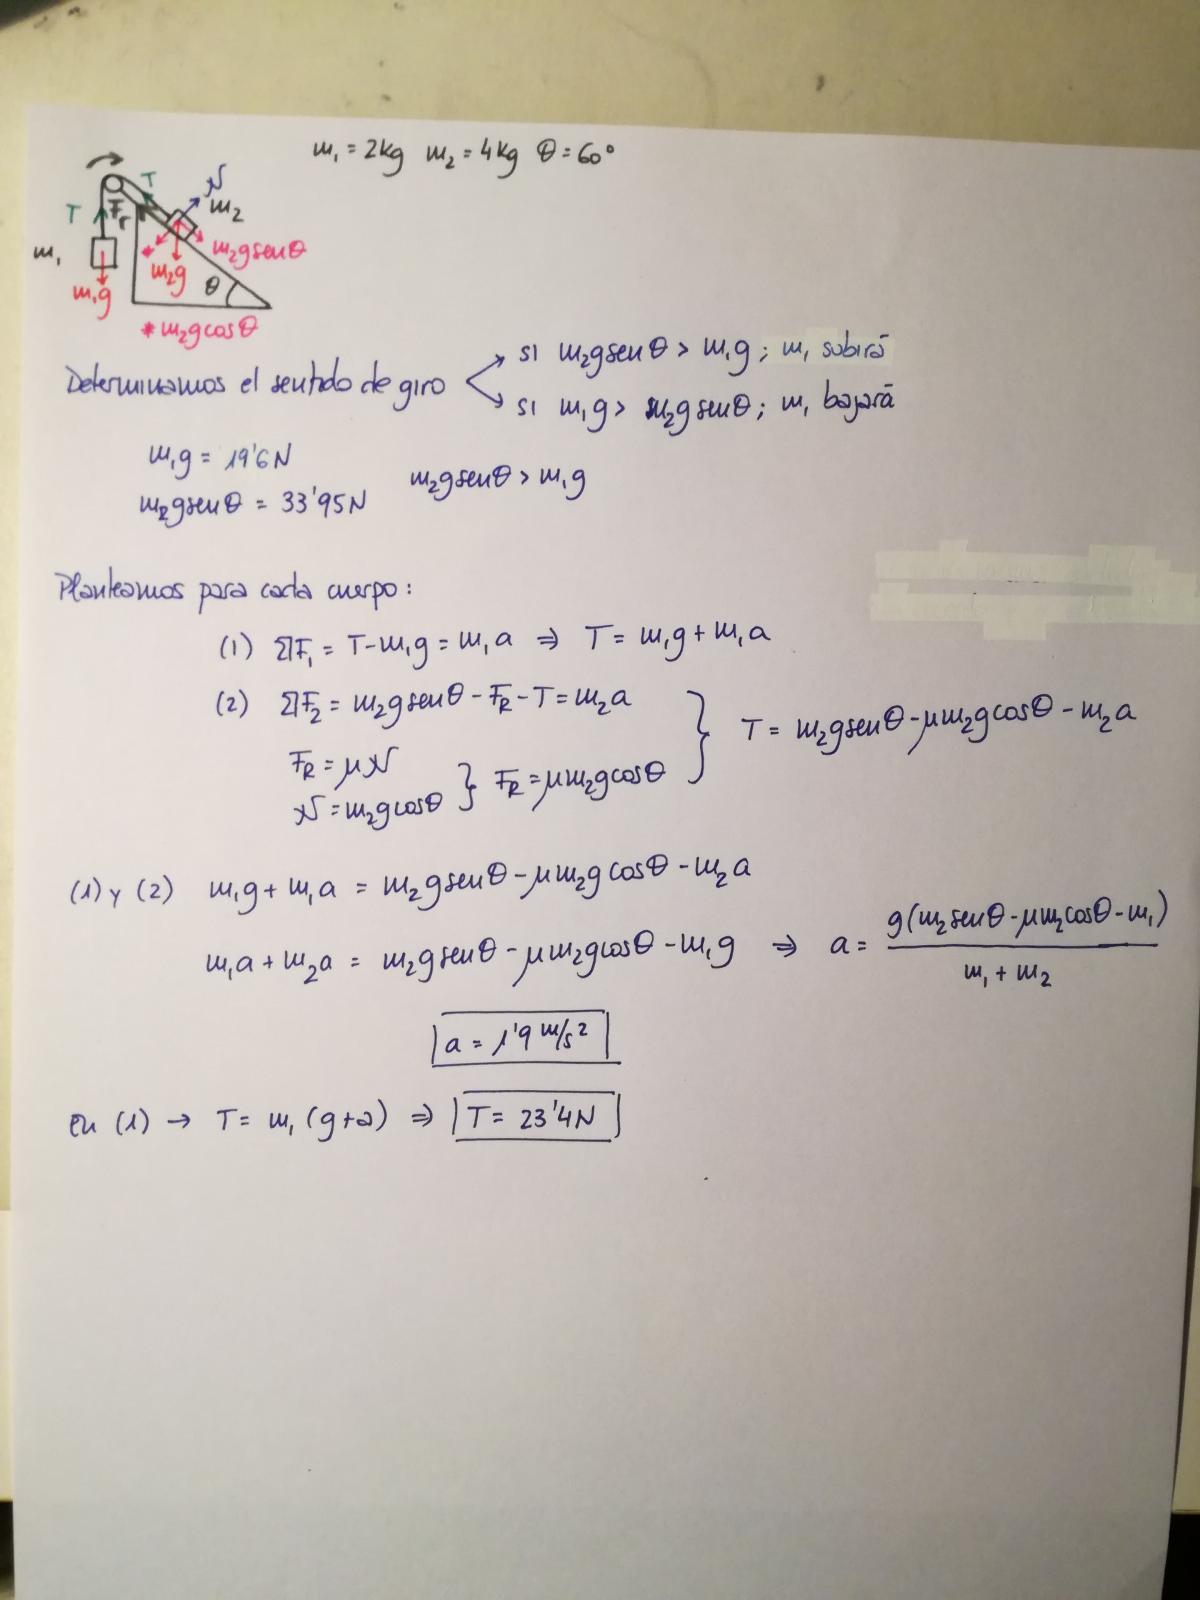 m₁ = 2kg m₂ = 4kg θ = 60°
T
N
T
Fr
m₂
m₁
m₂gsenθ
m₂g
m₁g
θ
* m₂gcosθ
Determinamos el sentido de giro
si m₂gsenθ > m₁g ; m₁ subirá
si m₁g > m₂gsenθ; m₁ bajará
m₁g = 19'6N
m₂gsenθ = 33'95N
m₂gsenθ > m₁g
Planteamos para cada cuerpo:
(1) ΣF₁ = T-m₁g = m₁a ⇒ T = m₁g + m₁a
(2) ΣF₂ = m₂gsenθ - FR - T = m₂a
T = m₂gsenθ - μm₂gcosθ - m₂a
FR = μN
N = m₂gcosθ } FR = μm₂gcosθ
(1) y (2) m₁g + m₁a = m₂gsenθ - μm₂gcosθ - m₂a
m₁a + m₂a = m₂gsenθ - μm₂gcosθ - m₁g ⇒ a = g(m₂senθ - μm₂cosθ - m₁) / m₁ + m₂
a = 1'9 m/s²
en (1) → T = m₁(g+a) ⇒ T = 23'4N